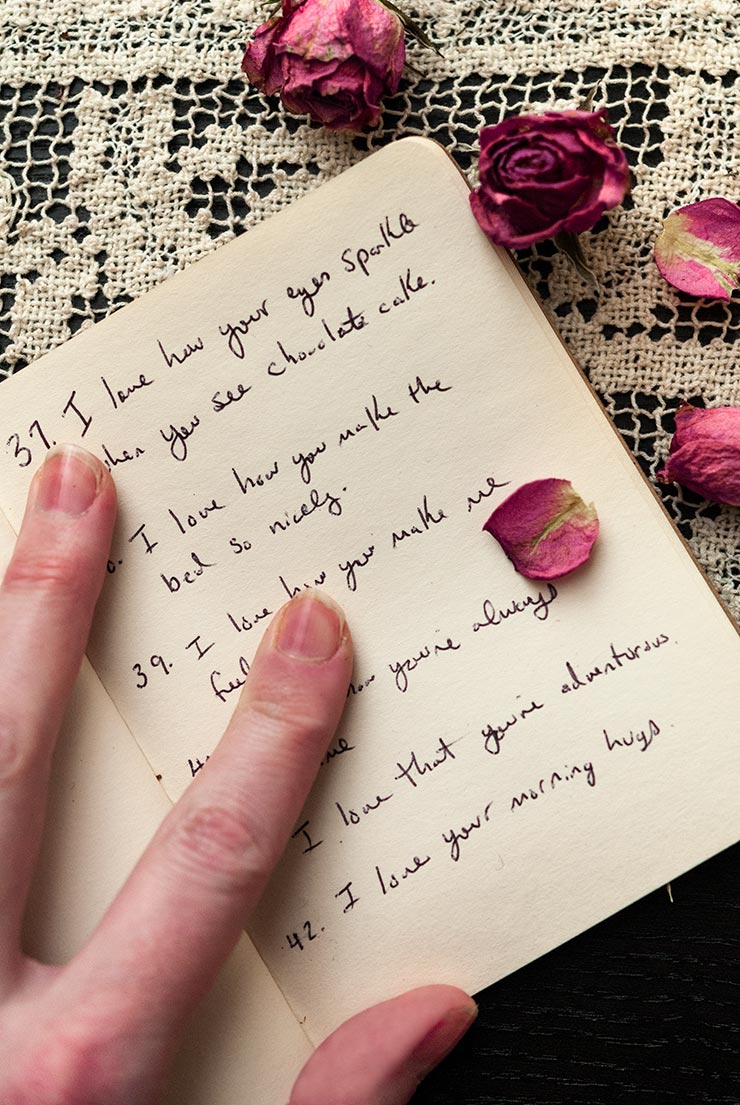 37. I love how your eyes sparkle
when you see chocolate cake.
I love how you make the
bed so nicely.
39. I love how you make me
how you're always
I love that you're adventurous.
42. I love your morning hugs.